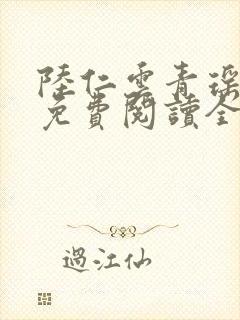 陸仁雲青瑤
免費閱讀全
過江仙